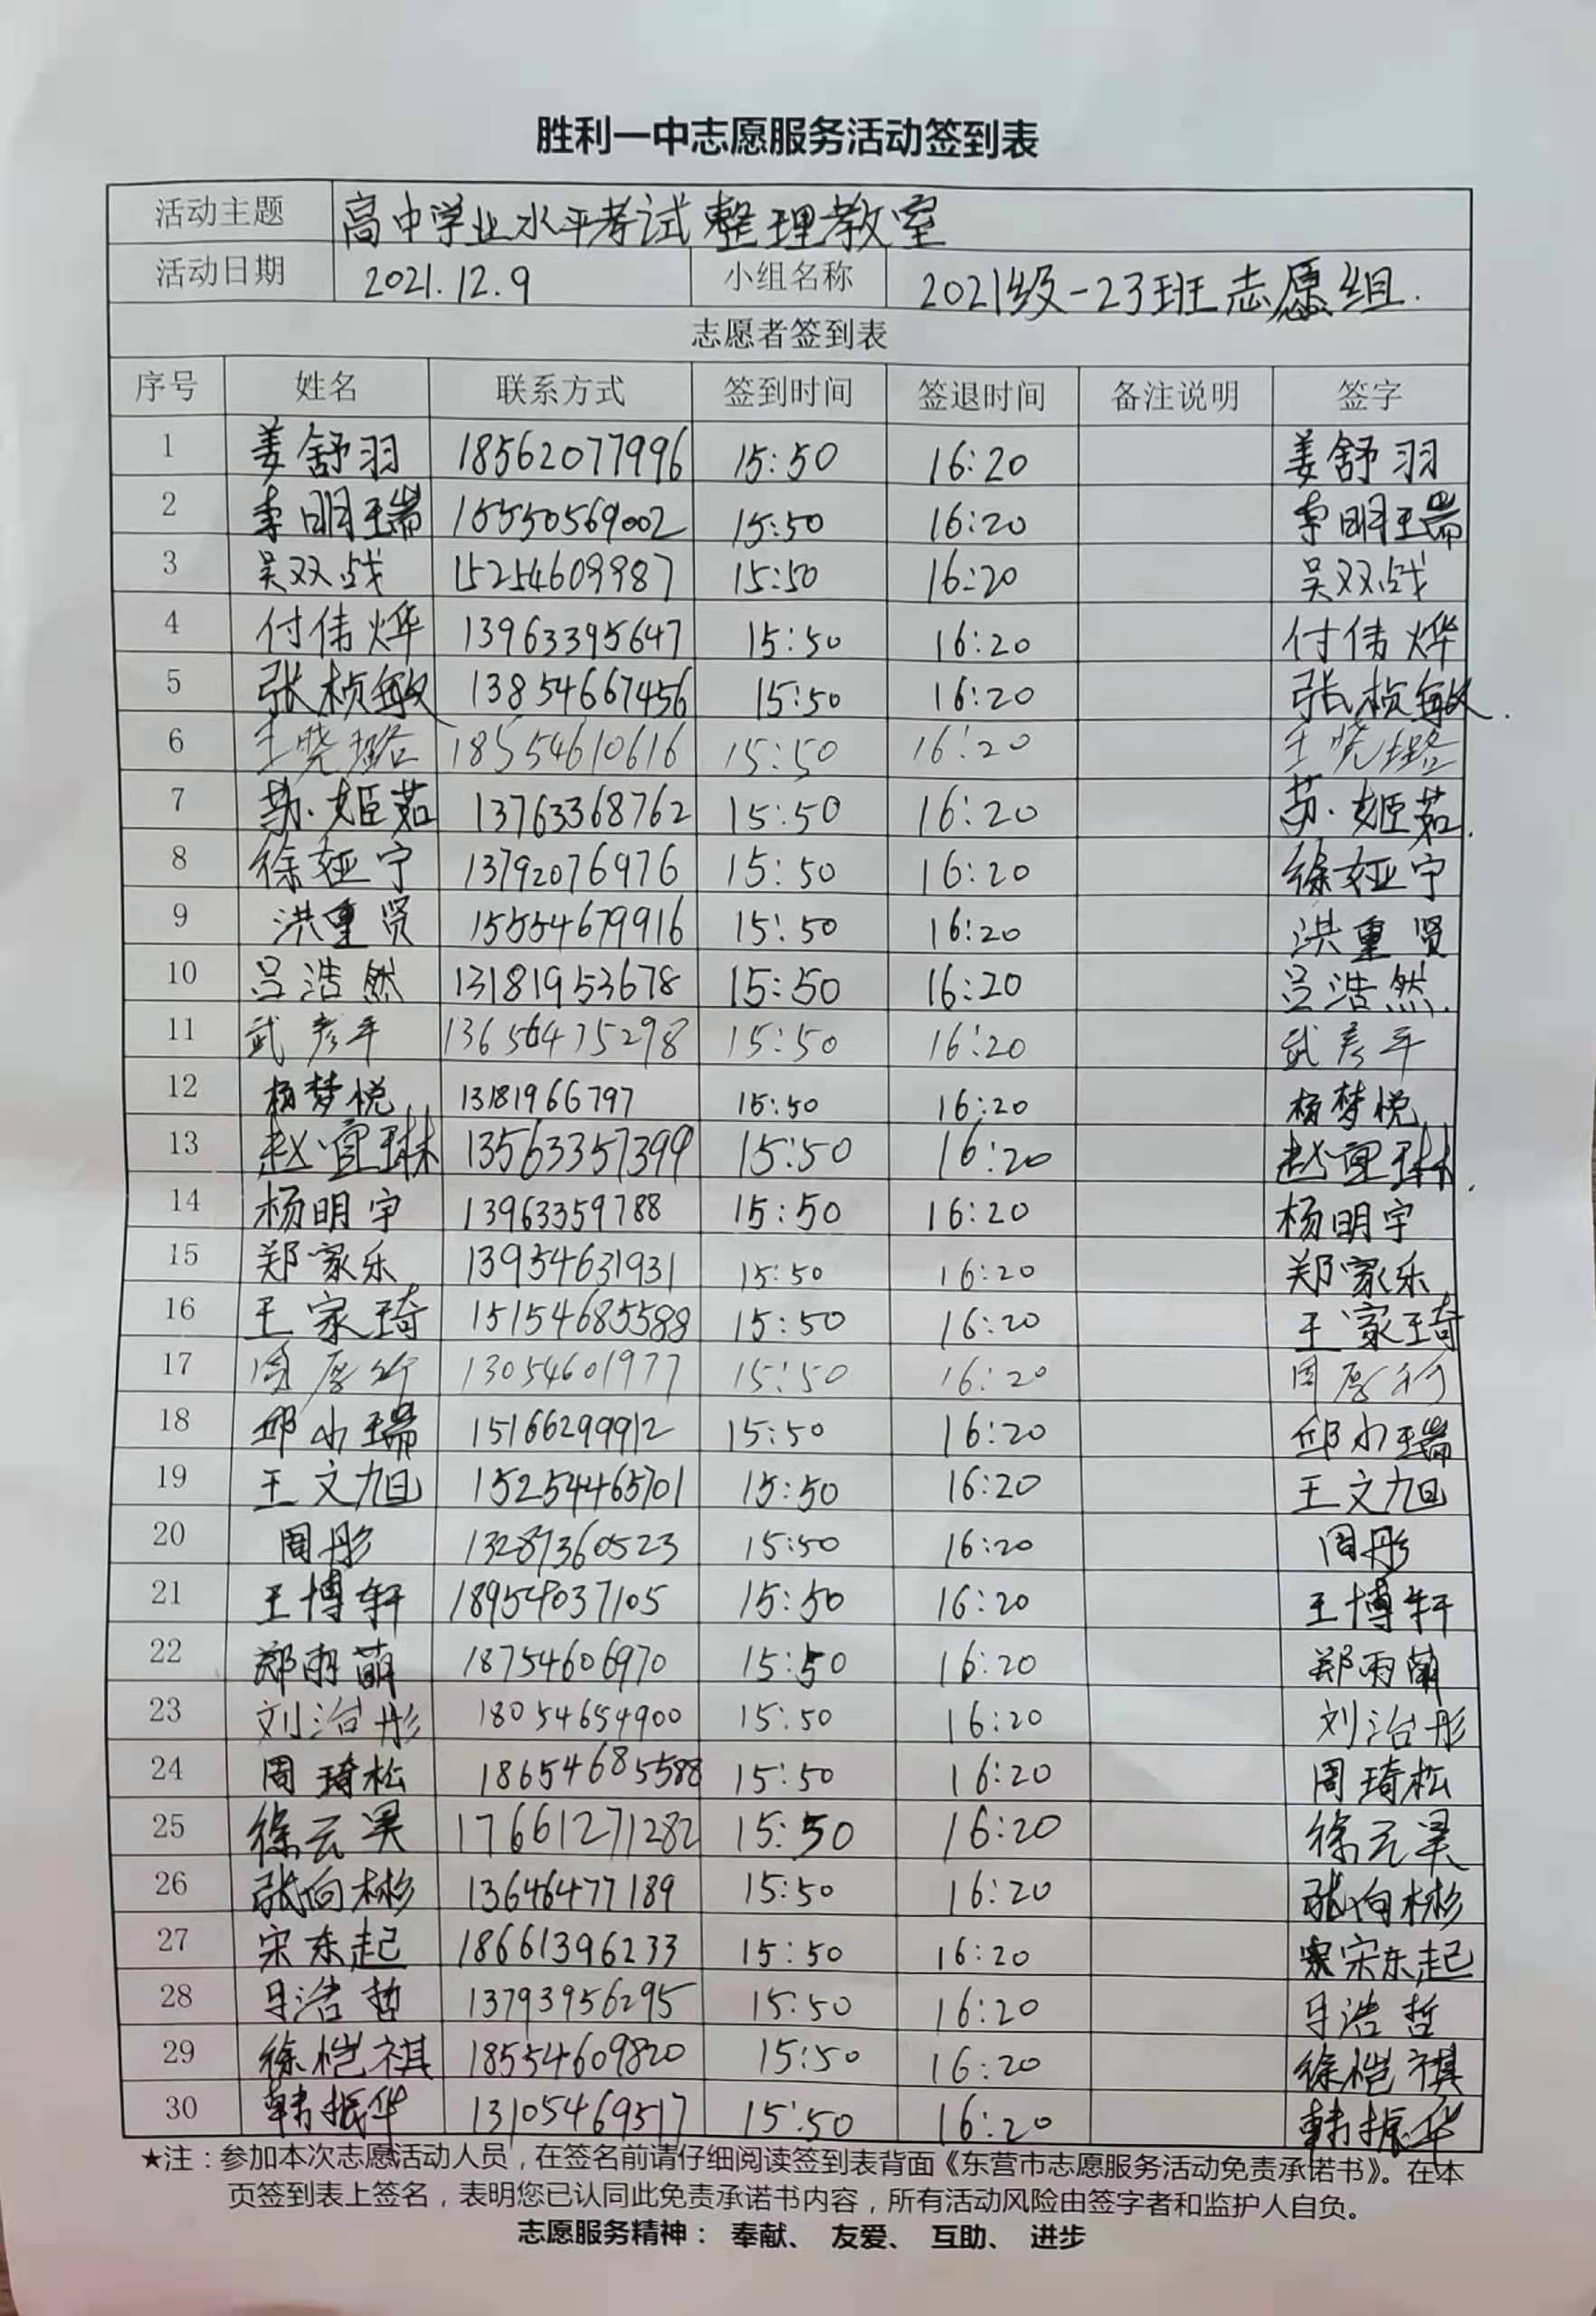 胜利一中志愿服务活动签到表
活动主题 高中学业水平考试整理教室
活动日期 2021.12.9 小组名称 2021级-23班志愿组.
志愿者签到表
序号 姓名 联系方式 签到时间 签退时间 备注说明 签字
1 姜舒羽 18562077996 15:50 16:20 姜舒羽
2 李明瑞 15550569002 15:50 16:20 李明瑞
3 吴双战 15254609987 15:50 16:20 吴双战
4 付伟烨 13963395647 15:50 16:20 付伟烨
5 张桢敏 13854667456 15:50 16:20 张桢敏.
6 王晓璐 18554610616 15:50 16:20 王晓璐
7 苏姬茹 13763368762 15:50 16:20 苏姬茹.
8 徐娅宁 13792076976 15:50 16:20 徐娅宁
9 洪重贤 15554679916 15:50 16:20 洪重贤
10 吕浩然 13181953678 15:50 16:20 吕浩然.
11 武彦平 13656475298 15:50 16:20 武彦平
12 杨梦悦 13181966797 15:50 16:20 杨梦悦
13 赵宜琳 13563357399 15:50 16:20 赵宜琳.
14 杨明宇 13963359788 15:50 16:20 杨明宇
15 郑家乐 13954631931 15:50 16:20 郑家乐
16 王家琦 15154685588 15:50 16:20 王家琦
17 周 13054601977 15:50 16:20 周
18 邱小瑞 15166299912 15:50 16:20 邱小瑞
19 王文旭 15254465701 15:50 16:20 王文旭
20 周彤 13287360523 15:50 16:20 周彤
21 王博轩 18954037105 15:50 16:20 王博轩
22 郑雨萌 18754606970 15:50 16:20 郑雨萌
23 刘治彤 18054654900 15:50 16:20 刘治彤
24 周琦松 18654685588 15:50 16:20 周琦松
25 徐云昊 17661271282 15:50 16:20 徐云昊
26 张向彬 13646477189 15:50 16:20 张向彬
27 宋东起 18661396233 15:50 16:20 宋东起
28 马浩哲 13793956295 15:50 16:20 马浩哲
29 徐恺祺 18554609820 15:50 16:20 徐恺祺
30 韩振华 13105469517 15:50 16:20 韩振华
★注：参加本次志愿活动人员，在签名前请仔细阅读签到表背面《东营市志愿服务活动免责承诺书》。在本
页签到表上签名，表明您已认同此免责承诺书内容，所有活动风险由签字者和监护人自负。
志愿服务精神： 奉献、 友爱、 互助、 进步